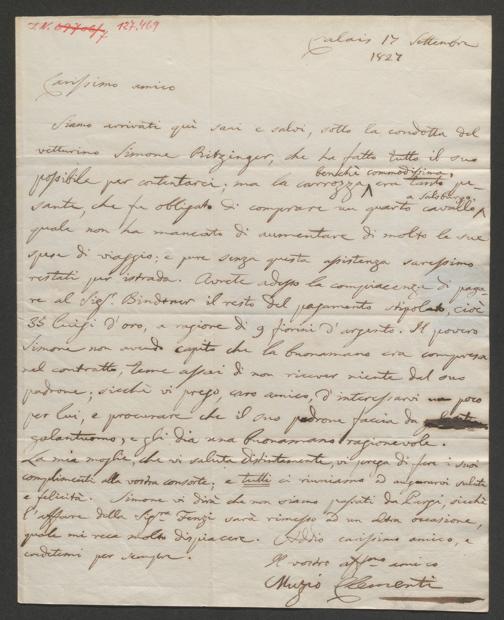 I.N. 69706/7 127.469
Calais 17 Settembre
1827
Carissimo amico
Siamo arrivati quì sani e salvi, sotto la condotta del
vetturino Simone Ritzinger, che ha fatto tutto il suo
possibile per contentarci; ma la carrozza benchè commodissima, era tanto pe-
sante, che fu obligato di comprare un quarto cavallo a Salsburgo,
quale non ha mancato di aumentare di molto le sue
spese di viaggio; e pure senza questa assistenza saressimo
restati per istrada. Avrete adesso la compiacenza di paga
re al Sigr. Bindtner il resto del pagamento stipolato, cioè
35 luigi d'oro, a ragione di 9 fiorini d'argento. Il povero
Simone non avendo capito che la buonamano era compresa
nel contratto, teme assai di non ricever niente dal suo
padrone; sicchè vi prego, caro amico, d'interessarvi un poco
per lui, e procurare che il suo padrone faccia da
galantuomo, e gli dia una buonamano ragionevole.
La mia moglie, che vi saluta distintamente, vi prega di fare i suoi
complimenti alla vostra consorte; e tutti ci riuniamo ad augurarvi salute
e felicità. Simone vi dirà che non siamo passati da Parigi, sicchè
l'affare della Sigra Fenzi sarà rimesso ad un altra occasione,
quale mi reca molto dispiacere. Addio carissimo amico, e
credetemi per sempre.
Il vostro affmo amico
Muzio Clementi